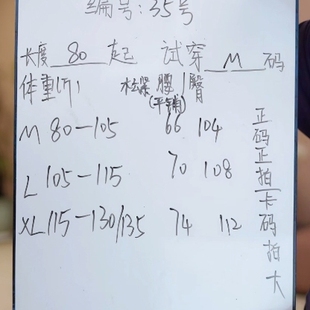 编号:35号
长度 80 起 试穿 M 码
体重(斤) 松紧 腰/臀
(平铺)
M 80-105 66 104
L 105-115 70 108
XL 115-130/135 74 112
正码正拍
卡码拍大